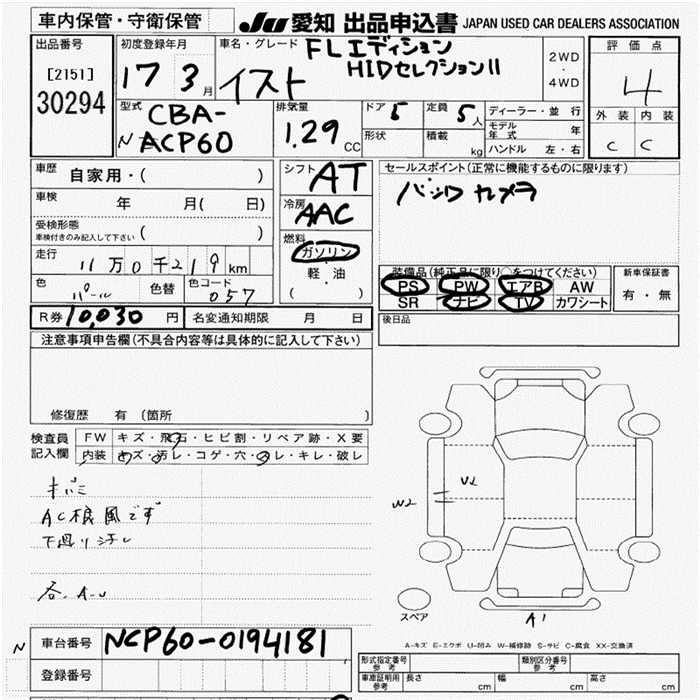 車内保管・守衛保管
JU 愛知 出品申込書 JAPAN USED CAR DEALERS ASSOCIATION
出品番号
[2151]
30294
初度登録年月
17 3 月
車名・グレード FLエディション
HIDセレクションII
イスト
2WD
・
4WD
評価点
4
外装 内装
C C
型式 CBA-
N ACP60
排気量
1.29 CC
ドア 5
定員 5 人
形状
積載 kg
ディーラー・並行
モデル年式 年
ハンドル 左・右
車歴 自家用・( )
車検 年 月( 日)
受検形態
車検付きのみ記入して下さい ( )
走行 11万0千219km
色 パール 色替 色コード 057
シフト AT
冷房 AAC
燃料
ガソリン
・
軽油
( )
セールスポイント(正常に機能するものに限ります)
バックカメラ
装備品(純正品に限り○をつけてください)
PS PW エアB AW
SR ナビ TV カワシート
新車保証書
有・無
R券 10,030 円 名変通知期限 月 日
後日品
注意事項申告欄(不具合内容等は具体的に記入して下さい)
修復歴 有 (箇所 )
検査員
記入欄
FW キズ・飛石・ヒビ割・リペア跡・X要
内装 キズ・汚レ・コゲ・穴・スレ・キレ・破レ
キバミ
AC根風です
下廻り汚レ
各.A-U
W2
U2
A1
スペア
A-キズ E-エクボ U-凹み W-補修跡 S-サビ C-腐食 XX-交換済
N 車台番号 NCP60-0194181
登録番号
形式指定番号
参考
類別区分番号
参考
車庫証明用
参考
長さ cm 幅 cm 高さ cm